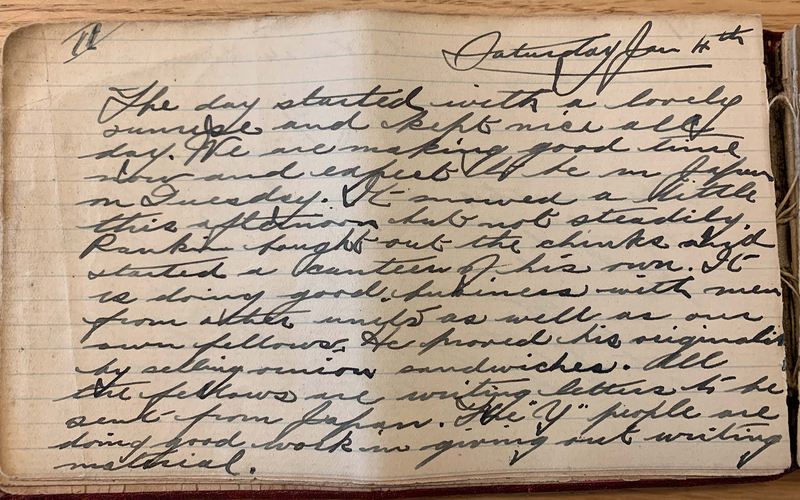 11
Saturday Jan 4th
The day started with a lovely
sunrise and kept nice all
day. We are making good time
now and expect to be in Japan
on Tuesday. It snowed a little
this afternoon but not steadily.
Rankin bought out the chinks and
started a canteen of his own. It
is doing good business with men
from other units as well as our
own fellows. He proved his originality
by selling onion sandwiches. All
the fellows are writing letters to be
sent from Japan. The "Y" people are
doing good work in giving out writing
material.